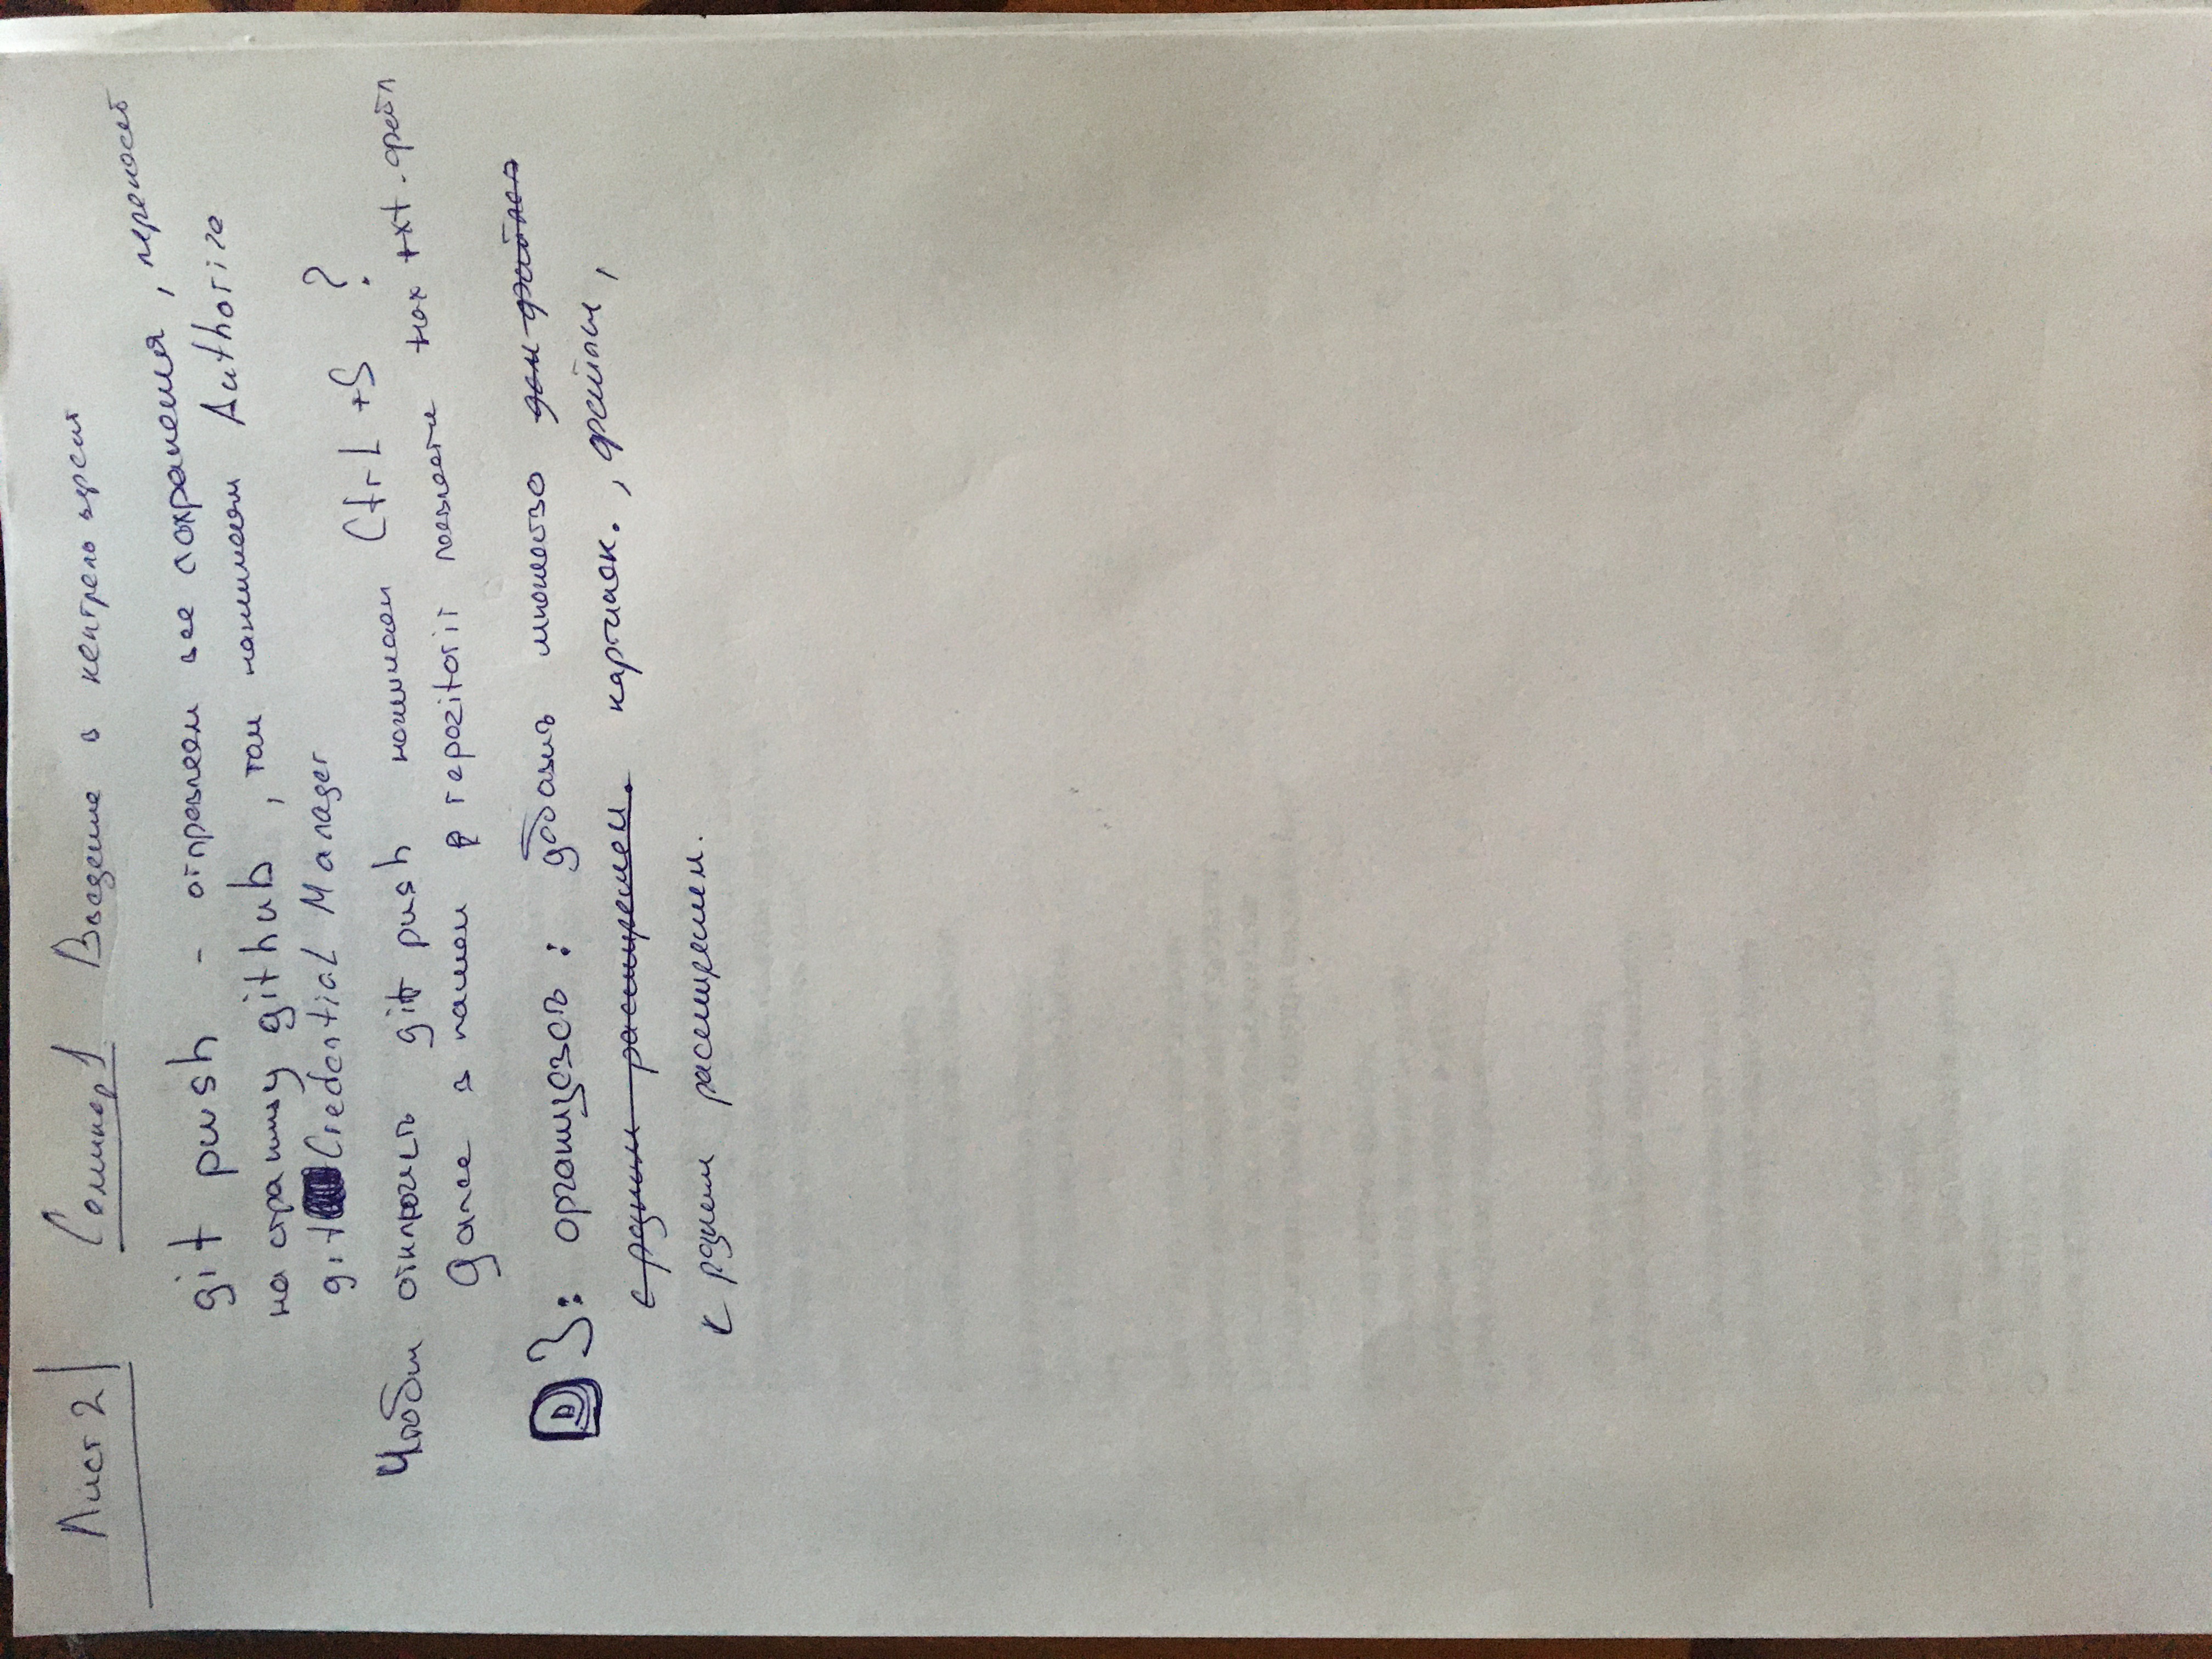 Лист 2 Семинар 1 Введение в контроль версий
git push - отправляем все сохранения, переносит
на страницу github, там нажимаем Authorize
git Credential Manager
Чтобы отключить git push нажимаем Ctrl +S ?
Далее в нашем repozitorii появляется txt. файл
ДЗ: организовать: добавить множество дом файлов
с разным расширением. картинок., файлы,
с разным расширением.